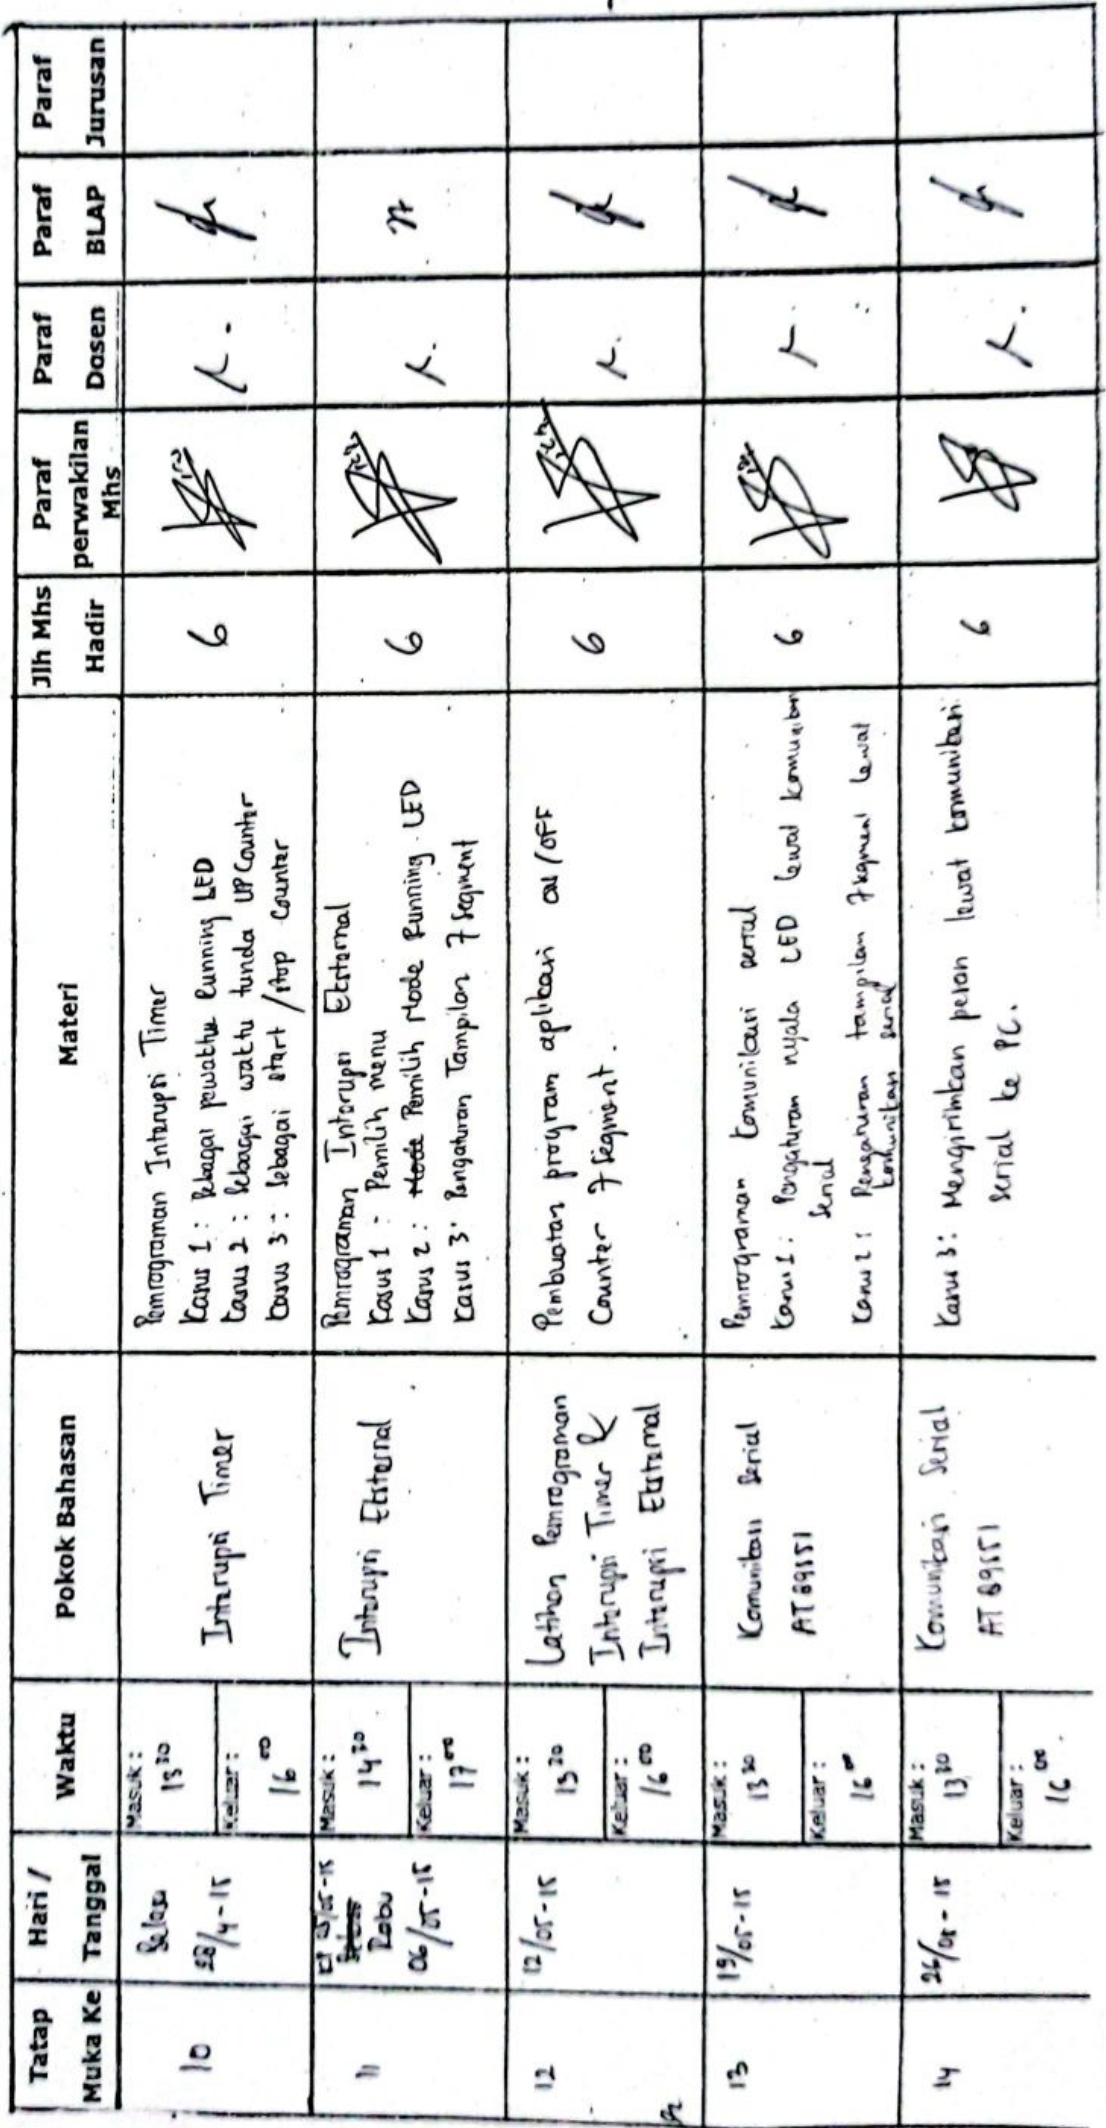 Tatap Muka Ke
Hari / Tanggal
Waktu
Pokok Bahasan
Materi
Jlh Mhs Hadir
Paraf perwakilan Mhs
Paraf Dosen
Paraf BLAP
Paraf Jurusan
10
Selasa
28/4-15
Masuk :
13 30
Keluar :
16 00
Interupsi Timer
Pemrograman Interupsi Timer
Kasus 1 : Sebagai pewaktu Running LED
Kasus 2 : Sebagai waktu tunda UP Counter
Kasus 3 : Sebagai start / stop Counter
6
11
05/05-15
Rabu
06/05-15
Masuk :
14 30
Keluar :
17 00
Interupsi Eksternal
Pemrograman Interupsi Eksternal
Kasus 1 : Pemilih menu
Kasus 2 : Mode Pemilih Mode Running LED
Kasus 3 : Pengaturan Tampilan 7 Segment
6
12
12/05-15
Masuk :
13 30
Keluar :
16 00
Latihan Pemrograman
Interupsi Timer &
Interupsi Eksternal
Pembuatan program aplikasi ON/OFF
Counter 7 Segment.
6
13
19/05-15
Masuk :
13 30
Keluar :
16 00
Komunikasi Serial
AT89S51
Pemrograman komunikasi serial
Kasus 1 : Pengaturan nyala LED lewat komunikasi
Serial
Kasus 2 : Pengaturan tampilan 7 segment lewat
komunikasi serial
6
14
26/05-15
Masuk :
13 30
Keluar :
16 00
Komunikasi Serial
AT89S51
Kasus 3 : Mengirimkan pesan lewat komunikasi
Serial ke PC.
6